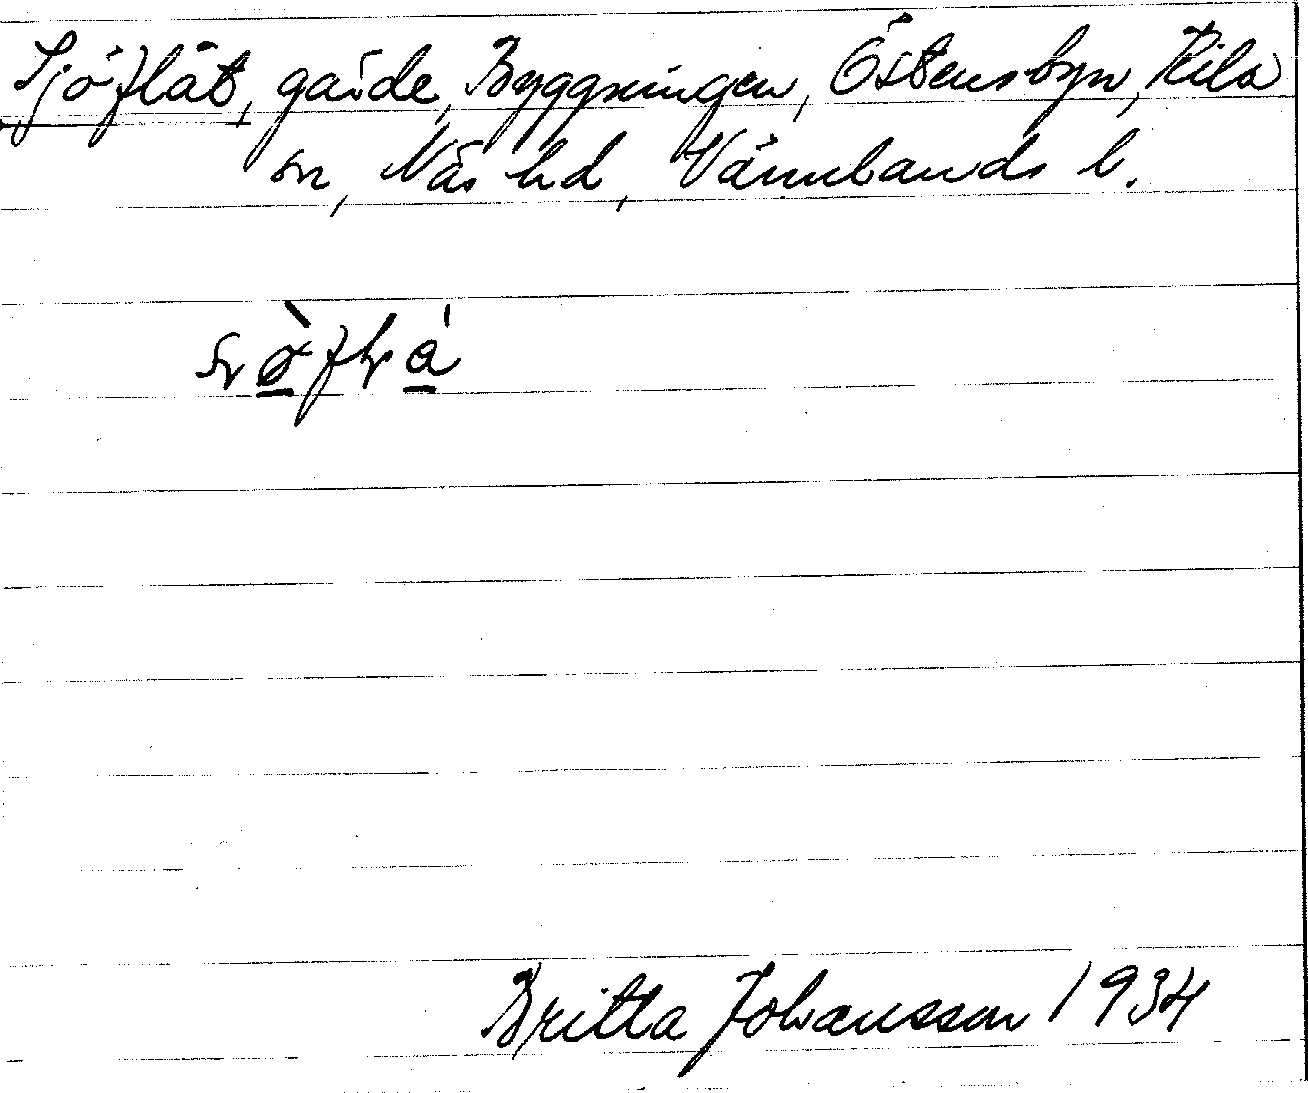 Sjöflåt, gärde, Byggningen, Östensbyn, Kila
sn, Näs hd, Värmlands l.
Britta Johansson 1934